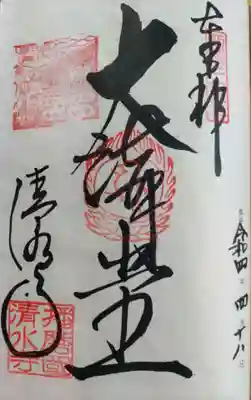 奉拝
令和四年四月十八日
大講堂
清水寺
播磨国
清水寺